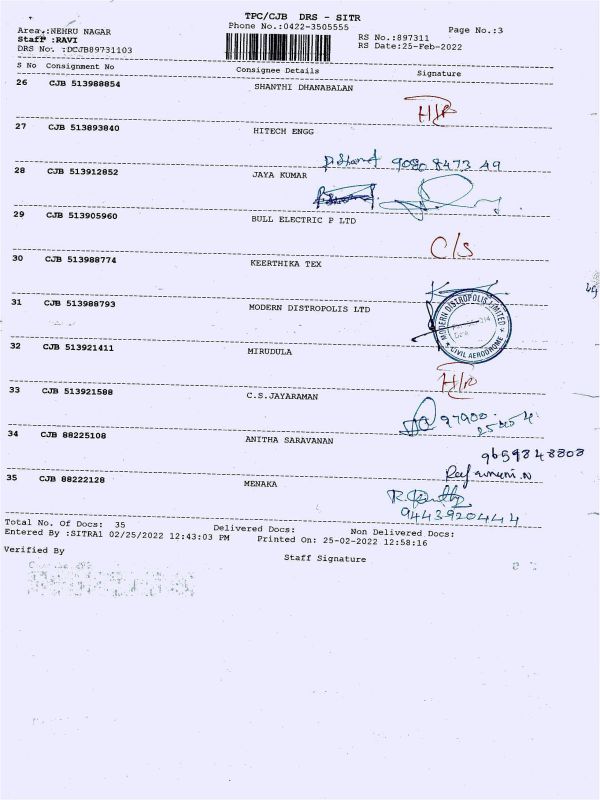 TPC/CJB DRS - SITR
Area :NEHRU NAGAR Phone No.:0422-3505555 Page No.:3
Staff :RAVI RS No.:897311
DRS No. :DCJB89731103 RS Date:25-Feb-2022
S No Consignment No Consignee Details Signature
26 CJB 513988854 SHANTHI DHANABALAN
27 CJB 513893840 HITECH ENGG
28 CJB 513912852 JAYA KUMAR
29 CJB 513905960 BULL ELECTRIC P LTD
C/s
30 CJB 513988774 KEERTHIKA TEX
31 CJB 513988793 MODERN DISTROPOLIS LTD
MODERN DISTROPOLIS LIMITED
CIVIL AERODROME
32 CJB 513921411 MIRUDULA
33 CJB 513921588 C.S.JAYARAMAN
97900
34 CJB 88225108 ANITHA SARAVANAN
9659848808
35 CJB 88222128 MENAKA
9443920444
Total No. Of Docs: 35 Delivered Docs: Non Delivered Docs:
Entered By :SITRA1 02/25/2022 12:43:03 PM Printed On: 25-02-2022 12:58:16
Verified By Staff Signature